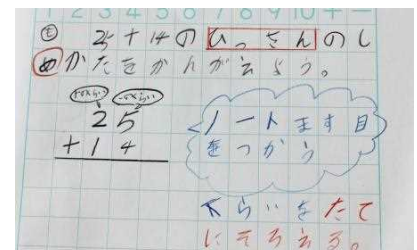 1 2 3 4 5 6 7 8 9 10 + −
も 25+14のひっさんのし
めかたをかんがえよう。
十のくらい 一のくらい
25
+14
ノートます目
をつかう
くらいをたて
にそろえる。